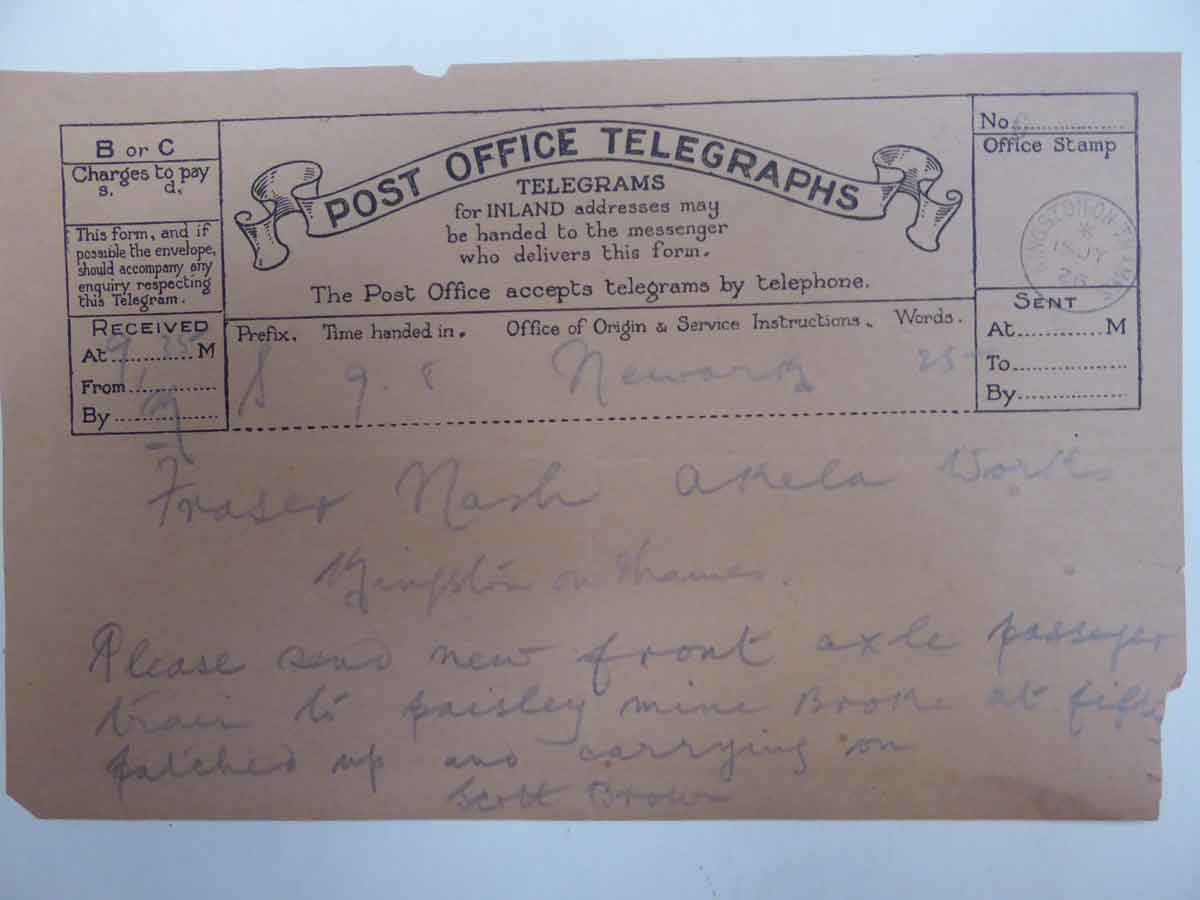 B or C
Charges to pay
s. d.
This form, and if
possible the envelope,
should accompany any
enquiry respecting
this Telegram.
RECEIVED
At 9.25 M
From
By
POST OFFICE TELEGRAPHS
TELEGRAMS
for INLAND addresses may
be handed to the messenger
who delivers this form.
The Post Office accepts telegrams by telephone.
Prefix. Time handed in. Office of Origin & Service Instructions. Words.
S 9.8 Newark 25
No.
Office Stamp
KINGSTON-ON-THAMES
JY
26
SENT
At M
To
By
Fraser Nash Akela Works
Kingston on Thames.
Please send new front axle passeger
train to paisley mine Broke at fifty
patched up and carrying on
Scott Brown